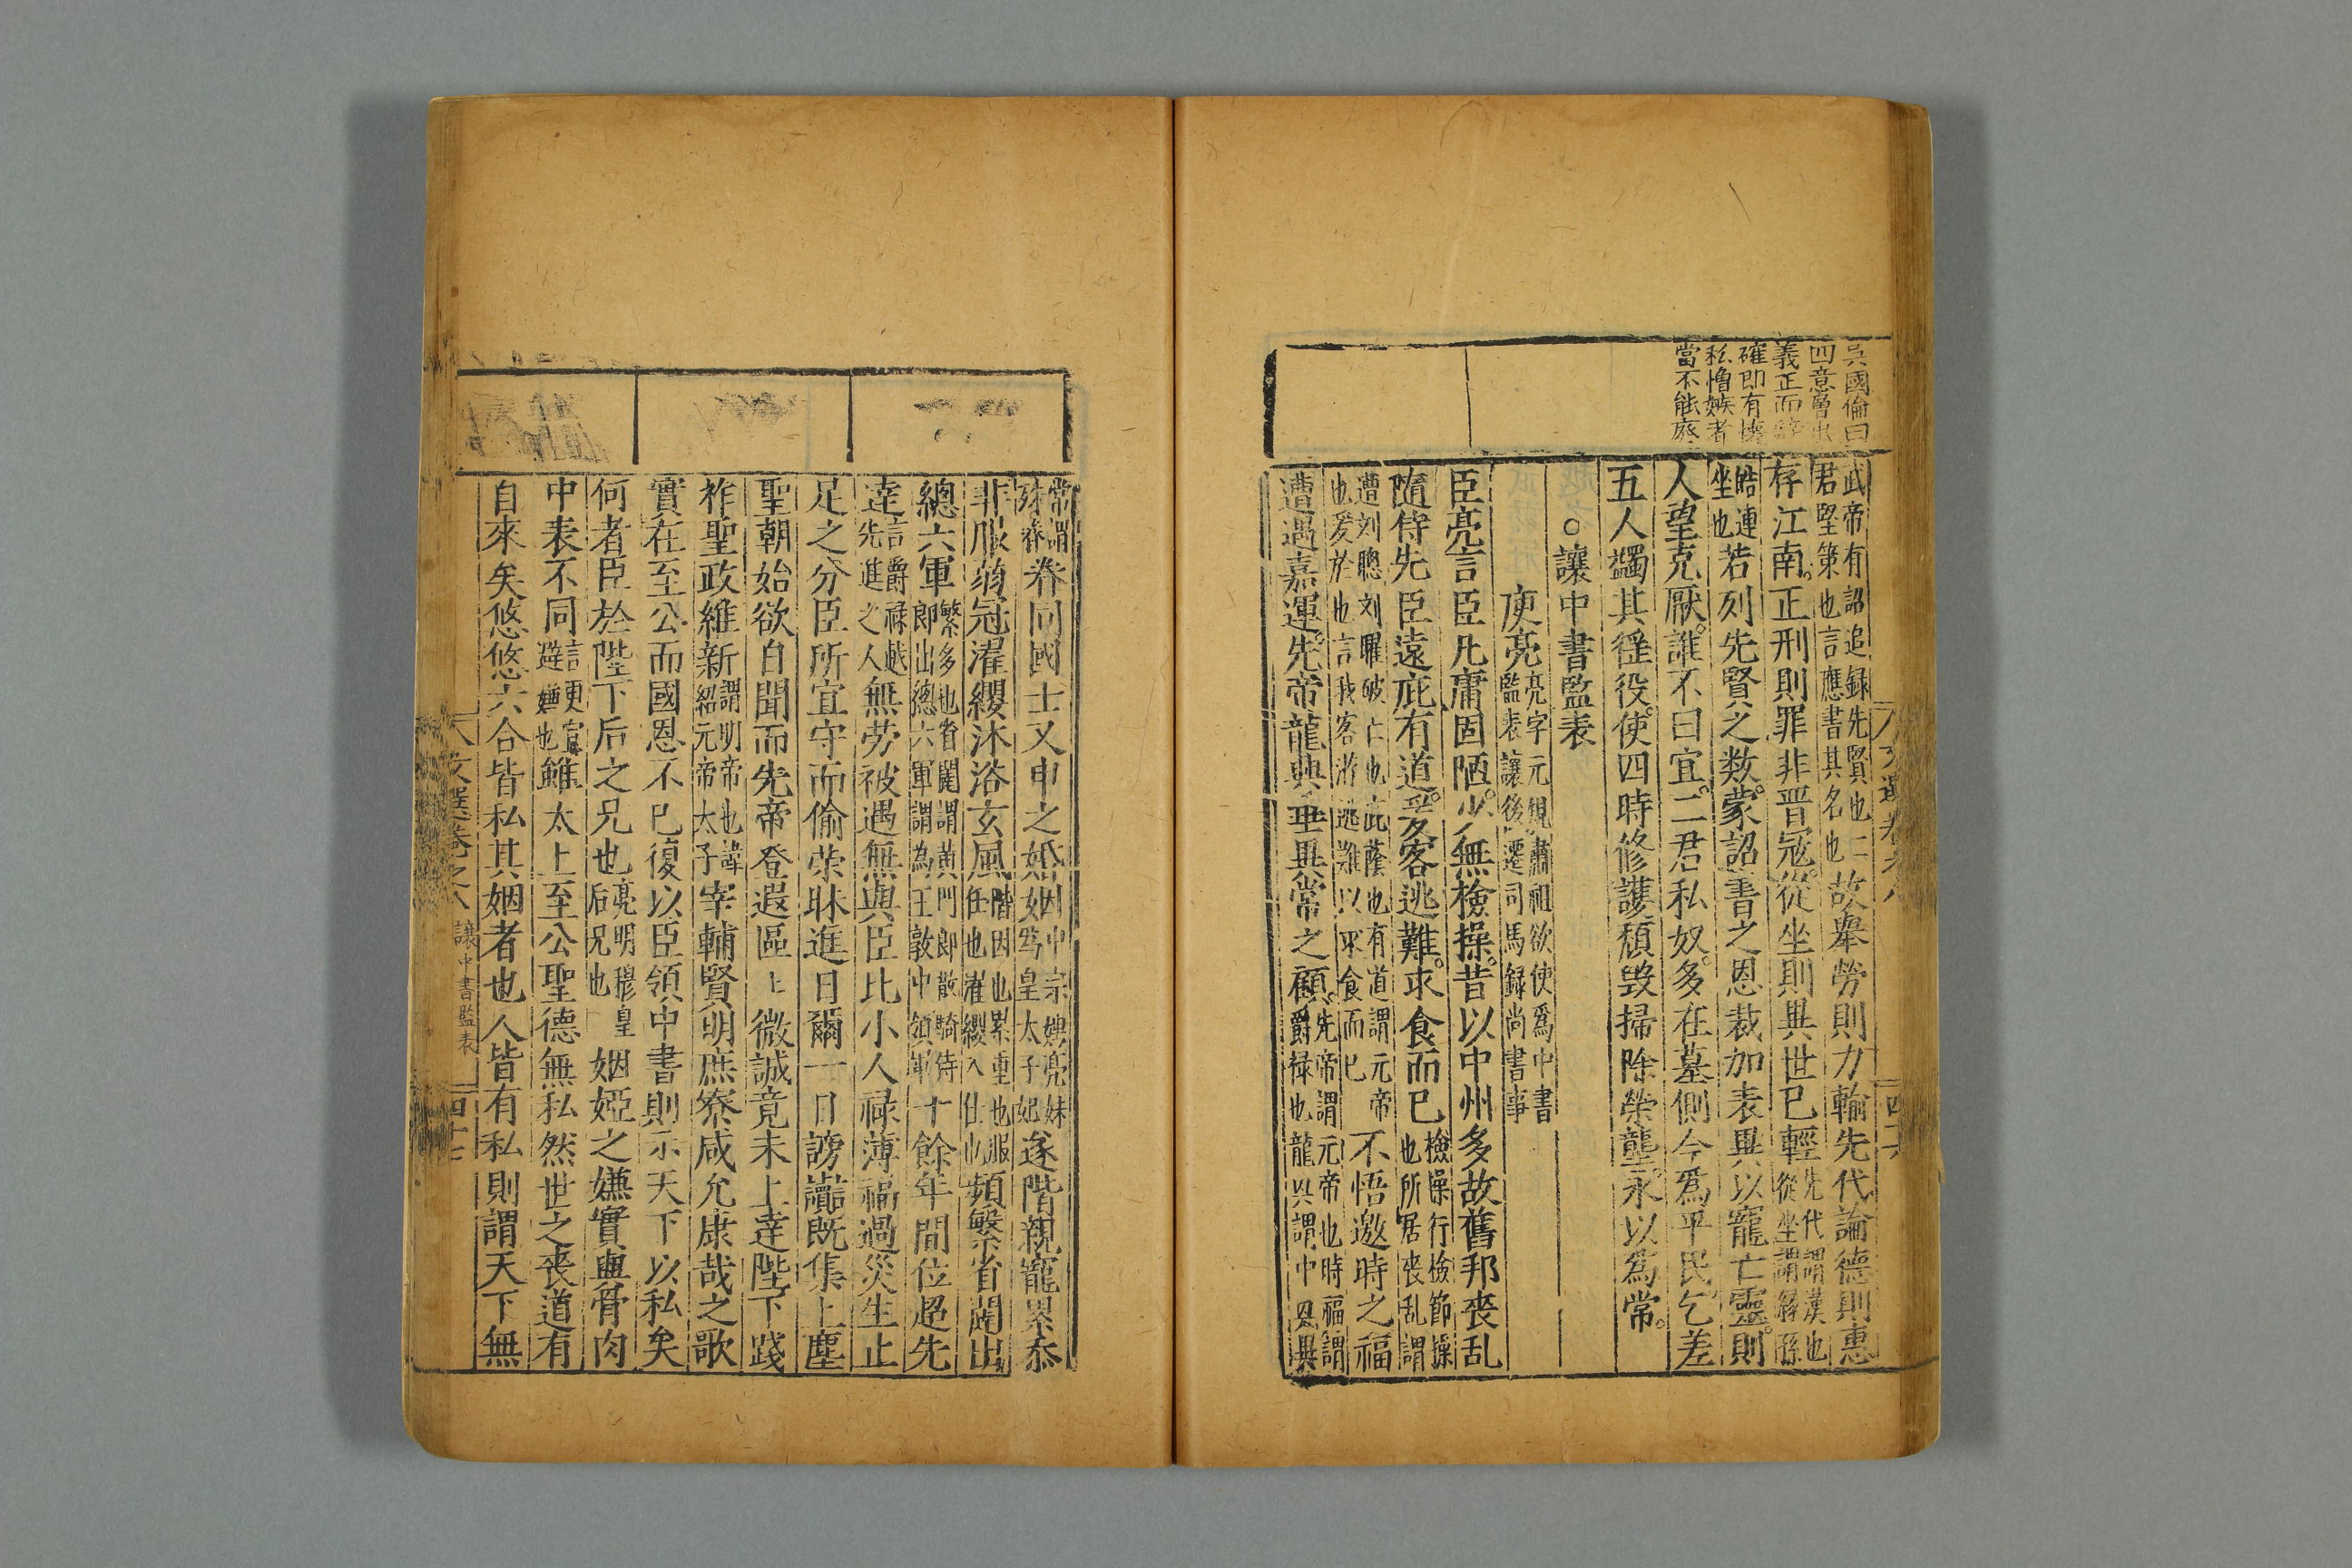 吳國倫曰
四意曾出
義正而辞
確即有懐
私憎嫉者
當不能廢
武帝有詔追録先賢也二
君堅第也言應書其名也
故舉勞則力輸先代論德則惠
存江南。正刑則罪非晋冦。從坐則異世已輕
先代謂漢也
從坐謂緣孫
皓連
坐也
若列先賢之数。蒙詔書之恩裁加表異以寵亡靈。則
人望克厭。誰不曰宜。二君私奴。多在墓側今爲平民乞差
五人蠲其徭役。使四時修護頹毁掃除塋壟永以爲常。
○讓中書監表
庾亮
亮字元規肅祖欲使爲中書
監表讓後遷司馬録尚書事
臣亮言臣凡庸固陋。少無檢操。昔以中州多故舊邦喪乱
隨侍先臣遠庇有道。爰客逃難。求食而已
檢操行檢節操
也所居喪乱謂
遭刘聰刘曜破亡也庇蔭也有道謂元帝
也爰於也言我客游逃難以求食而已
不悟邀時之福
遭遇嘉運。先帝龍興垂異常之顧。
先帝謂元帝也時福謂
爵禄也龍興謂中興
常謂
殊眷
眷同國士又申之婚姻
中宗娉亮妹
爲皇太子妃
遂階親寵累忝
非服蒻冠濯纓沐浴玄風
階因也累重也服
任也濯纓入仕也
頻繁省闥出
總六軍
繁多也省闥謂黄門郎散騎侍
郎出總六軍謂為王敦中領軍
十餘年間位超先
達
言爵禄越
先進之人
無劳被遇無與臣比小人禄薄福過災生止
足之分臣所宜守而偷荣昧進日爾一日謗讟既集上塵
聖朝始欲自聞而先帝登遐區上微誠竟未上達陛下踐
祚聖政維新
謂明帝也諱
紹元帝太子
宰輔賢明庶寮咸允康哉之歌
實在至公而國恩不已復以臣領中書則示天下以私矣
何者臣於陛下后之兄也
亮明穆皇
后兄也
姻婭之嫌實與骨肉
中表不同
言更宜
避嫌也
雖太上至公聖德無私然世之喪道有
自來矣悠悠六合皆私其姻者也人皆有私則謂天下無
文選卷之八
讓中書監表
四十七